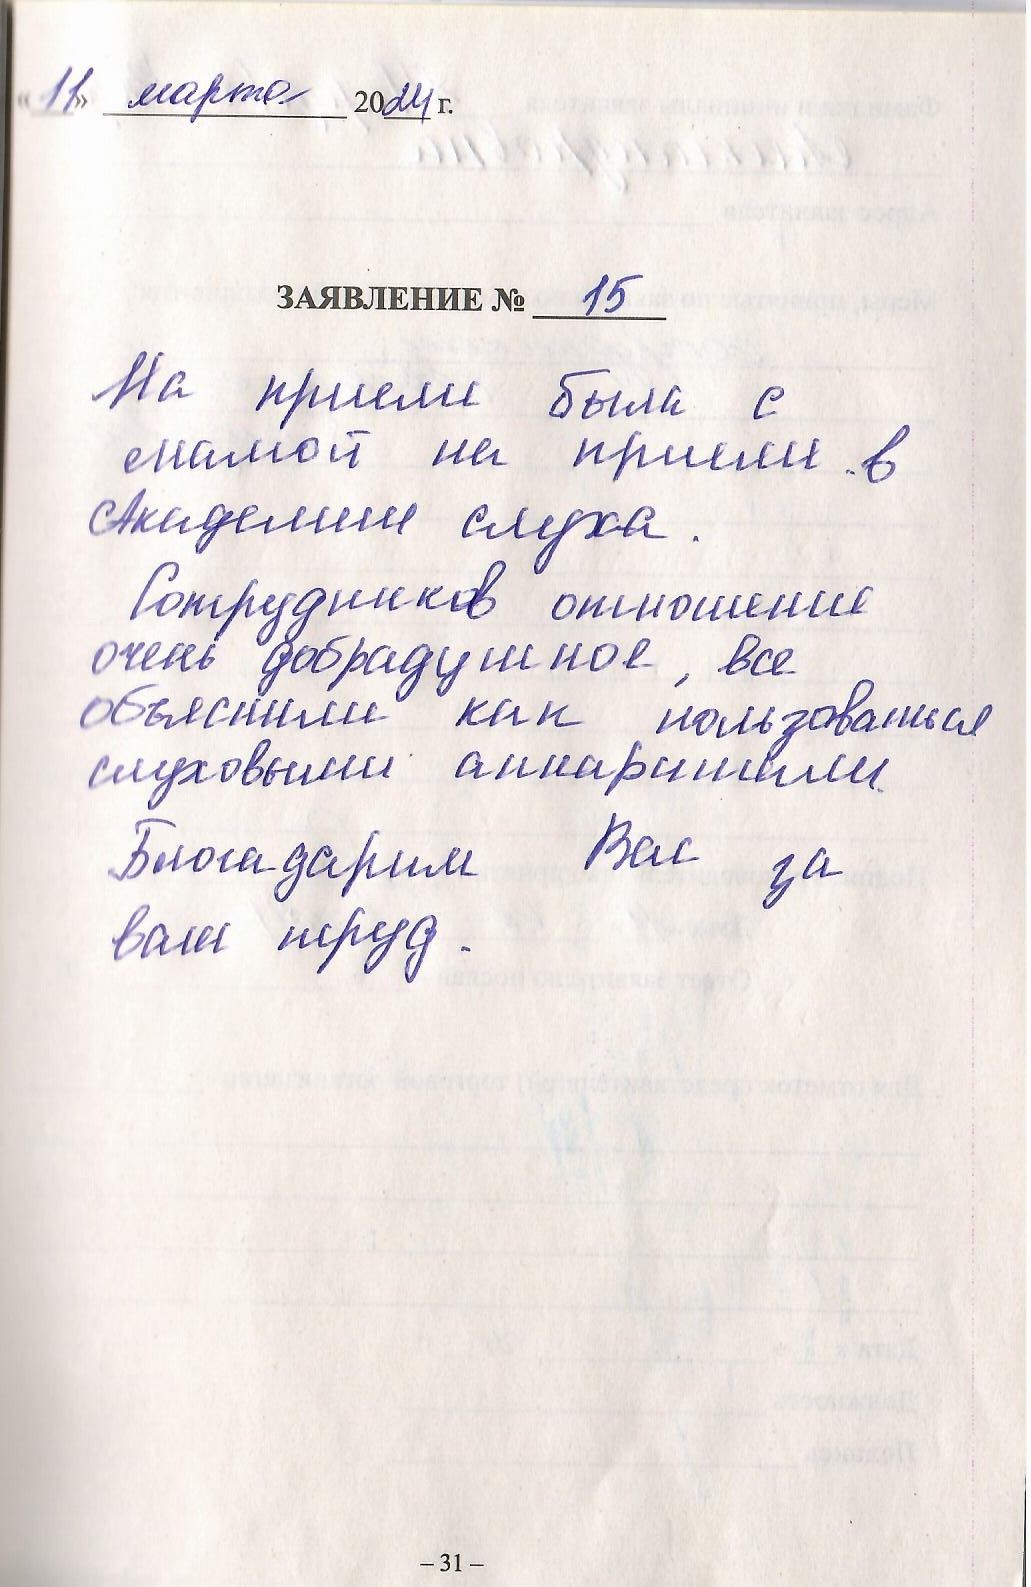 «11» марта 2024 г.
ЗАЯВЛЕНИЕ № 15
На приеме была с
мамой на приеме в
Академии слуха.
Сотрудников отношение
очень добрадушное, все
объяснили как пользоваться
слуховыми аппаратами.
Благадарим Вас за
ваш труд.
– 31 –